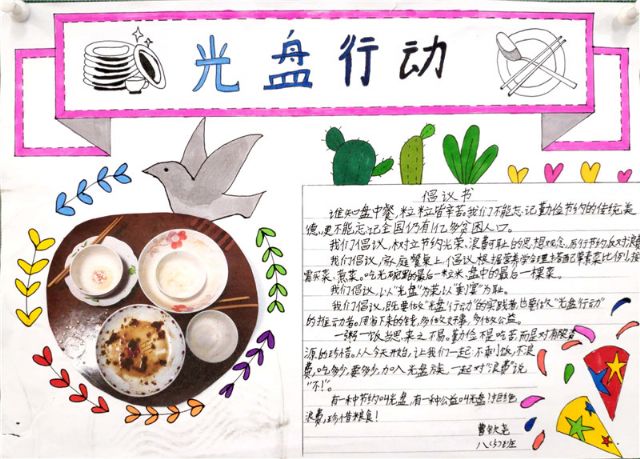 光盘行动
倡议书
谁知盘中餐,粒粒皆辛苦,我们不能忘记勤俭节约的传统美
德,更不能忘记全国仍有1亿多贫困人口。
我们倡议,树立节约光荣、浪费可耻的思想观念,厉行节约反对浪费
我们倡议,家庭餐桌上,倡议根据营养学合理搭配荤素菜比例,按
需买菜、煮菜。吃光碗里的最后一粒米,盘中的最后一棵菜。
我们倡议,以"光盘"为荣,以"剩宴"为耻。
我们倡议,既要做"光盘行动"的实践者,也要做"光盘行动"
的推动者。用省下来的钱,多做好事,多做公益。
一粥一饭,当思来之不易。勤俭不是吃苦,而是对有限资
源的珍惜。从今天开始,让我们一起不剩饭,不浪
费,吃多少,要多少,加入光盘族,一起对"浪费"说
"不!"。
有一种节约叫光盘,有一种公益叫光盘!拒绝
浪费,珍惜粮食!
曹
八 班